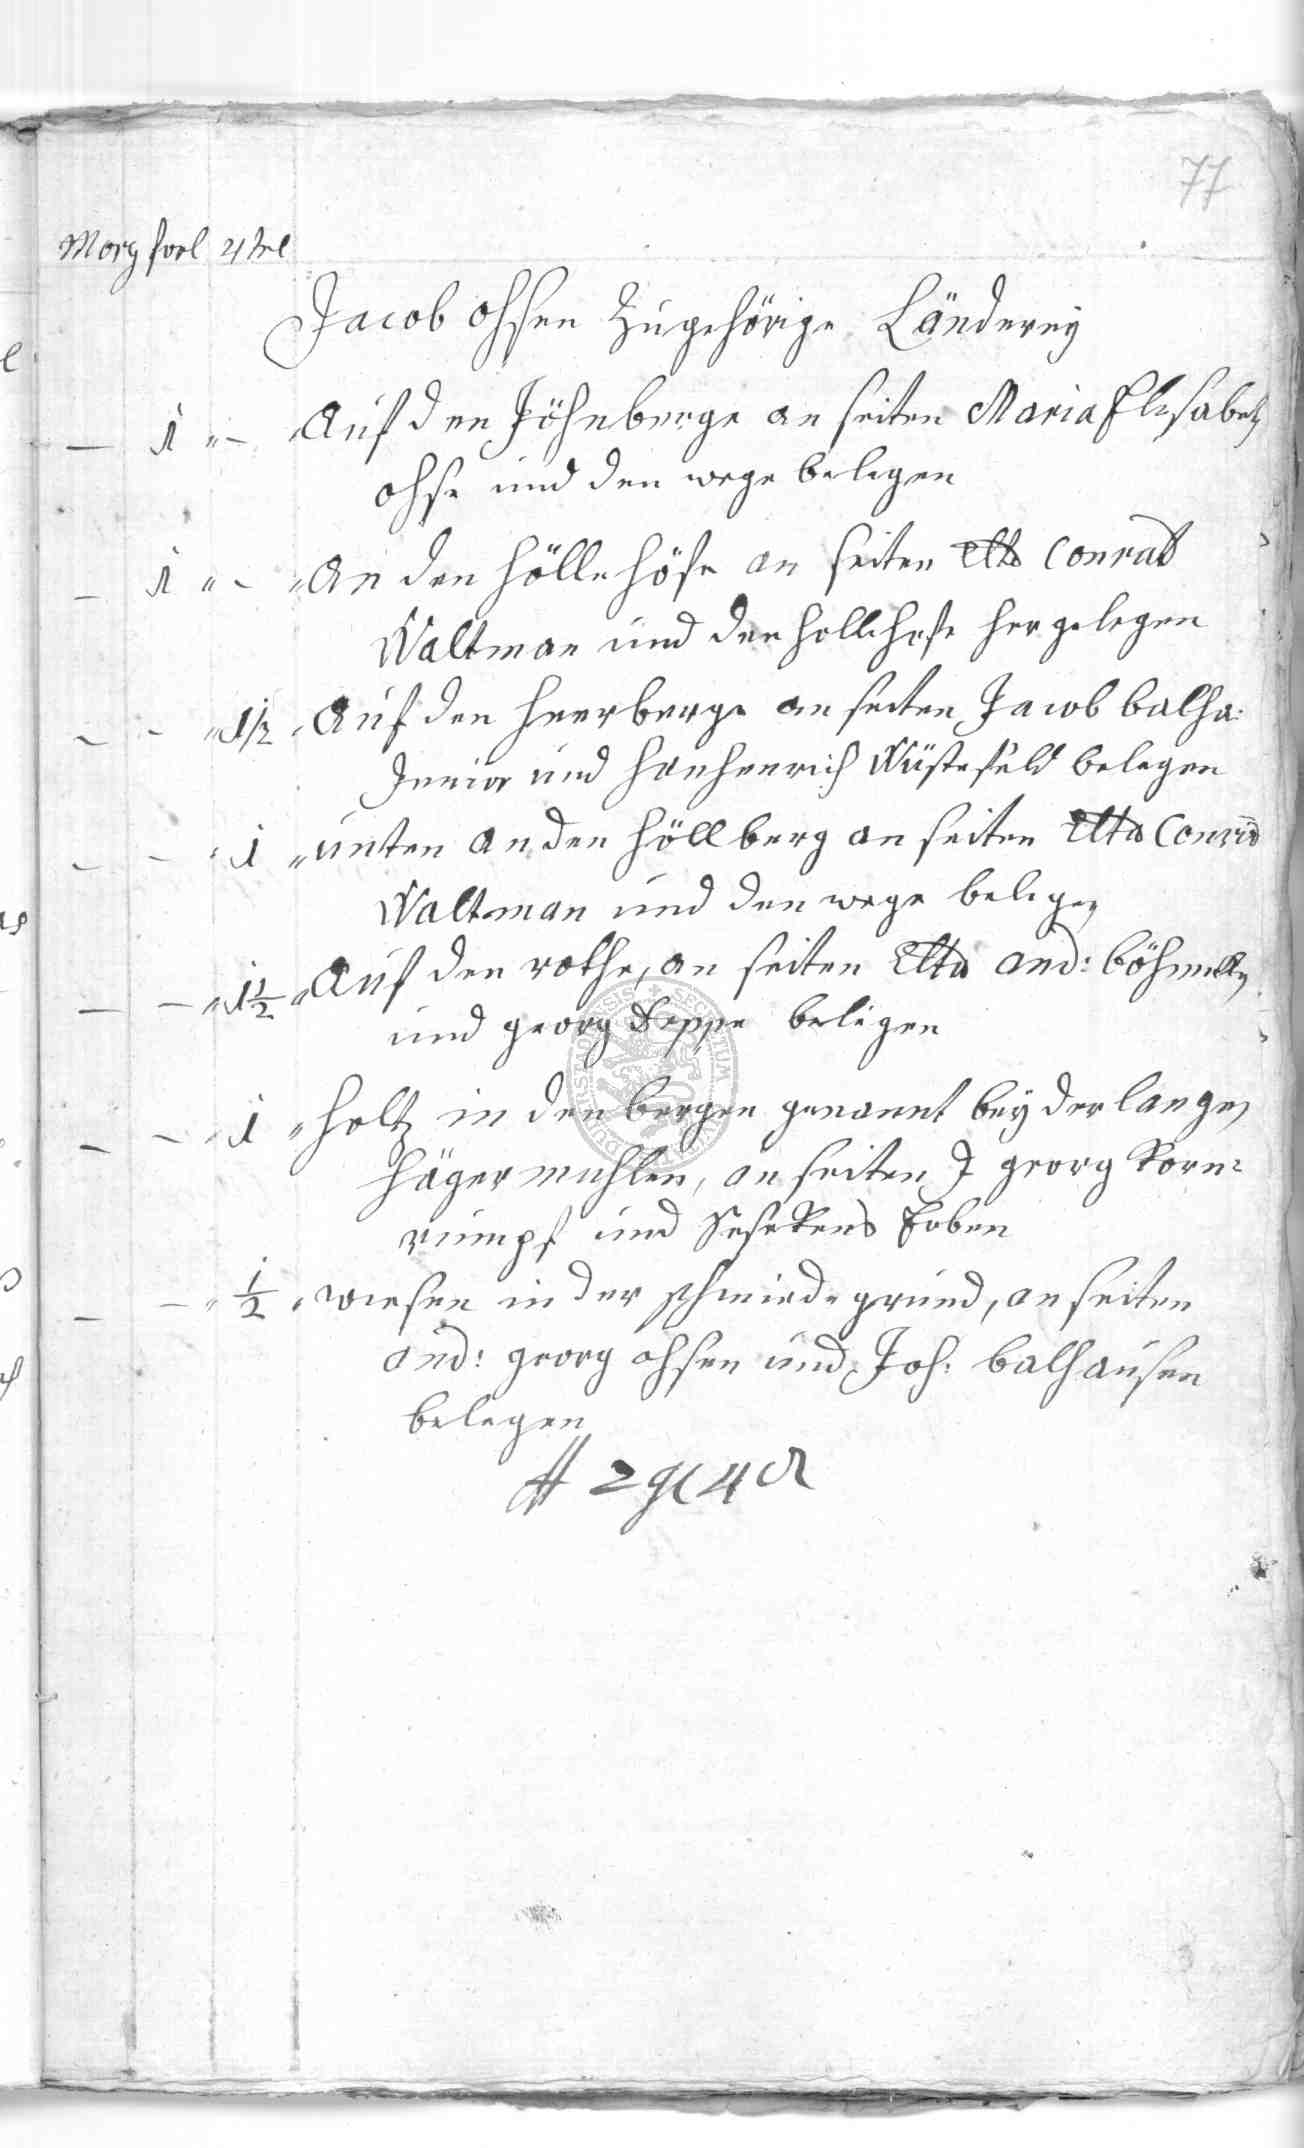 77
Morg forl 4tel
Jacob ohsen Zugehörige Länderey
— 1 " – Auf den Jöhnberge an seiten Maria Elisabeth
ohse und den wege belegen
— 1 " – " An den hölle höfe an seiten Conrad
Waltman und den hollehofe her gelegen
– – " 1½ " Auf den heerberge an seiten Jacob balha:
Junior und hanhenrich Wüstefeld belegen
– – " 1 " unten an den höllberg an seiten Conrad
Waltman und den wege belegen
— — " 1½ " Auf den rothe, an seiten and:
und georg Deppe belegen
– – " 1 " holtz in den bergen genannt bey der langen
häger muhlen, an seiten J georg Korn=
rumpf und Erben
— — " ½ " wiesen in der schmiede grund, an seiten
and: georg ohsen und Joh: balhausen
belegen
2 gl 4 d